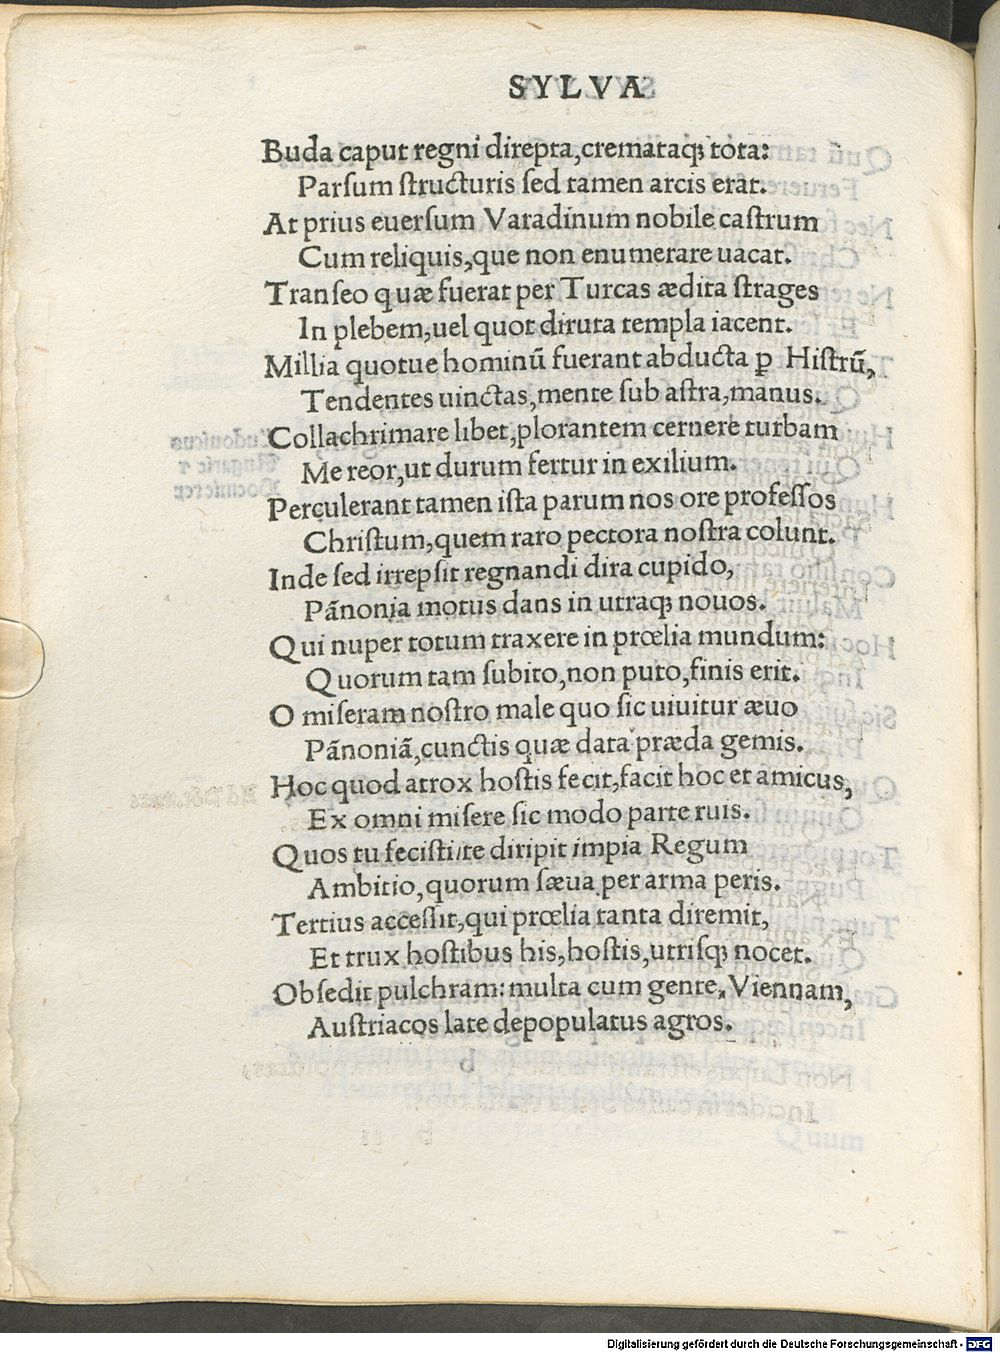 SYLVA
Buda caput regni direpta, cremataqꝫ tota:
Parsum structuris sed tamen arcis erat.
At prius euersum Varadinum nobile castrum
Cum reliquis, que non enumerare uacat.
Transeo quæ fuerat per Turcas ædita strages
In plebem, uel quot diruta templa iacent.
Millia quotue hominū fuerant abducta ꝑ Histrū,
Tendentes uinctas, mente sub astra, manus.
Collachrimare libet, plorantem cernere turbam
Me reor, ut durum fertur in exilium.
Perculerant tamen ista parum nos ore professos
Christum, quem raro pectora nostra colunt.
Inde sed irrepsit regnandi dira cupido,
Pãnonia motus dans in utraqꝫ nouos.
Qui nuper totum traxere in prœlia mundum:
Quorum tam subito, non puto, finis erit.
O miseram nostro male quo sic uiuitur æuo
Pãnoniã, cunctis quæ data præda gemis.
Hoc quod atrox hostis fecit, facit hoc et amicus,
Ex omni misere sic modo parte ruis.
Quos tu fecisti, te diripit impia Regum
Ambitio, quorum sæua per arma peris.
Tertius accessit, qui prœlia tanta diremit,
Et trux hostibus his, hostis, utrisqꝫ nocet.
Obsedit pulchram: multa cum gente, Viennam,
Austriacos late depopulatus agros.
Digitalisierung gefördert durch die Deutsche Forschungsgemeinschaft - DFG